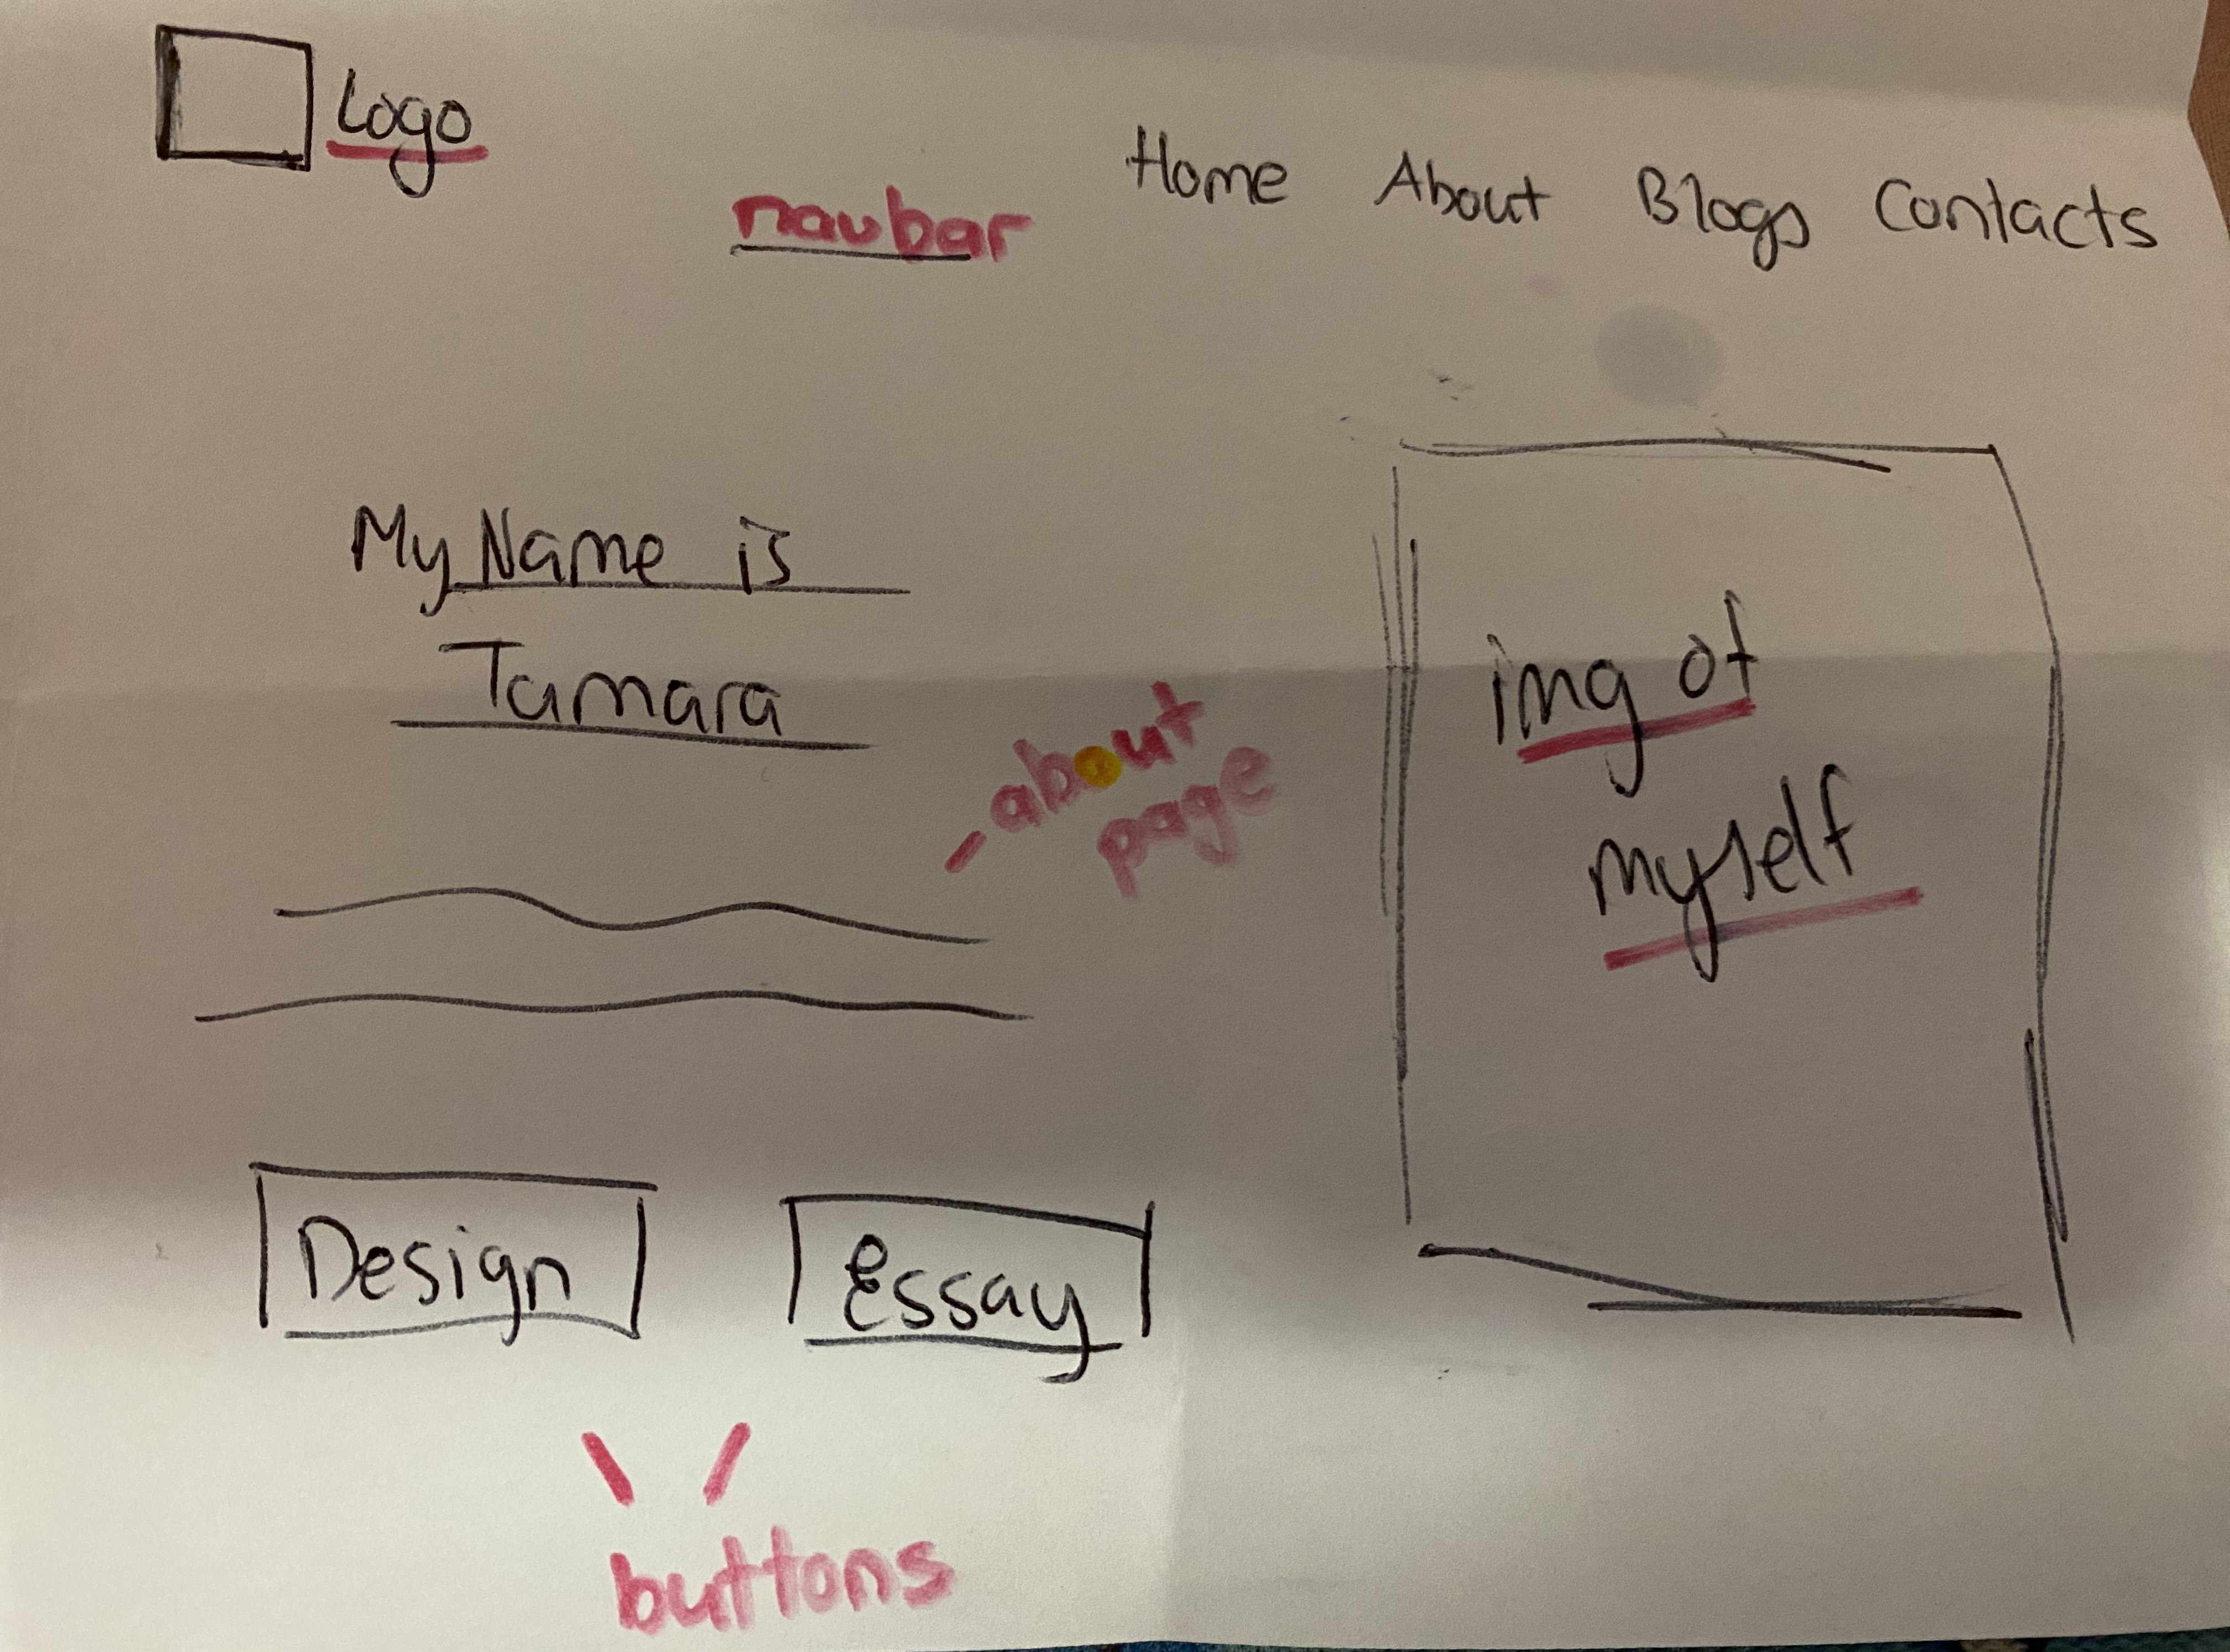 Logo
navbar
Home About Blogs Contacts
My Name is
Tamara
about
page
img of
myself
Design
Essay
buttons